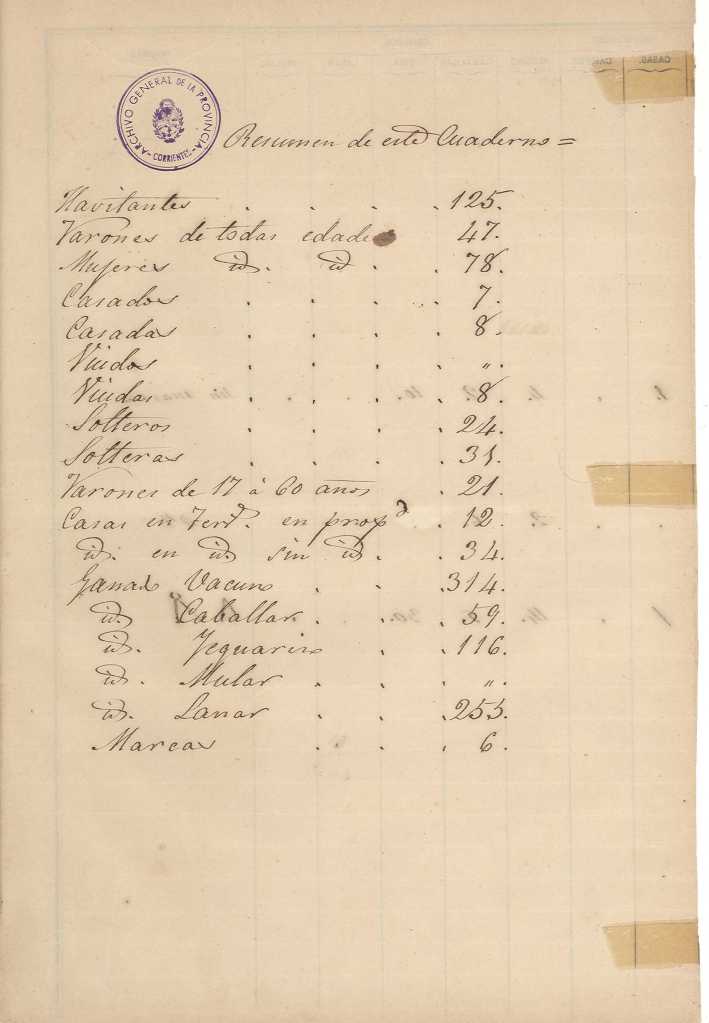 ARCHIVO GENERAL DE LA PROVINCIA
- CORRIENTES -
Resumen de este Cuaderno =
Havitantes . . . . 125.
Varones de todas edades . 47.
Mujeres id. id . . 78.
Casados . . . . 7.
Casadas . . . . 8.
Viudos . . . . „.
Viudas . . . . 8.
Solteros . . . . 24.
Solteras . . . . 31.
Varones de 17 á 60 años . 21.
Casas en en propd . 12.
id. en id. sin id. . . 34.
Ganado Vacuno . . . 314.
id. Caballar . . . 59.
id. Yeguarizo . . 116.
id. Mular . . . „.
id. Lanar . . . 255.
Marcas . . . 6.